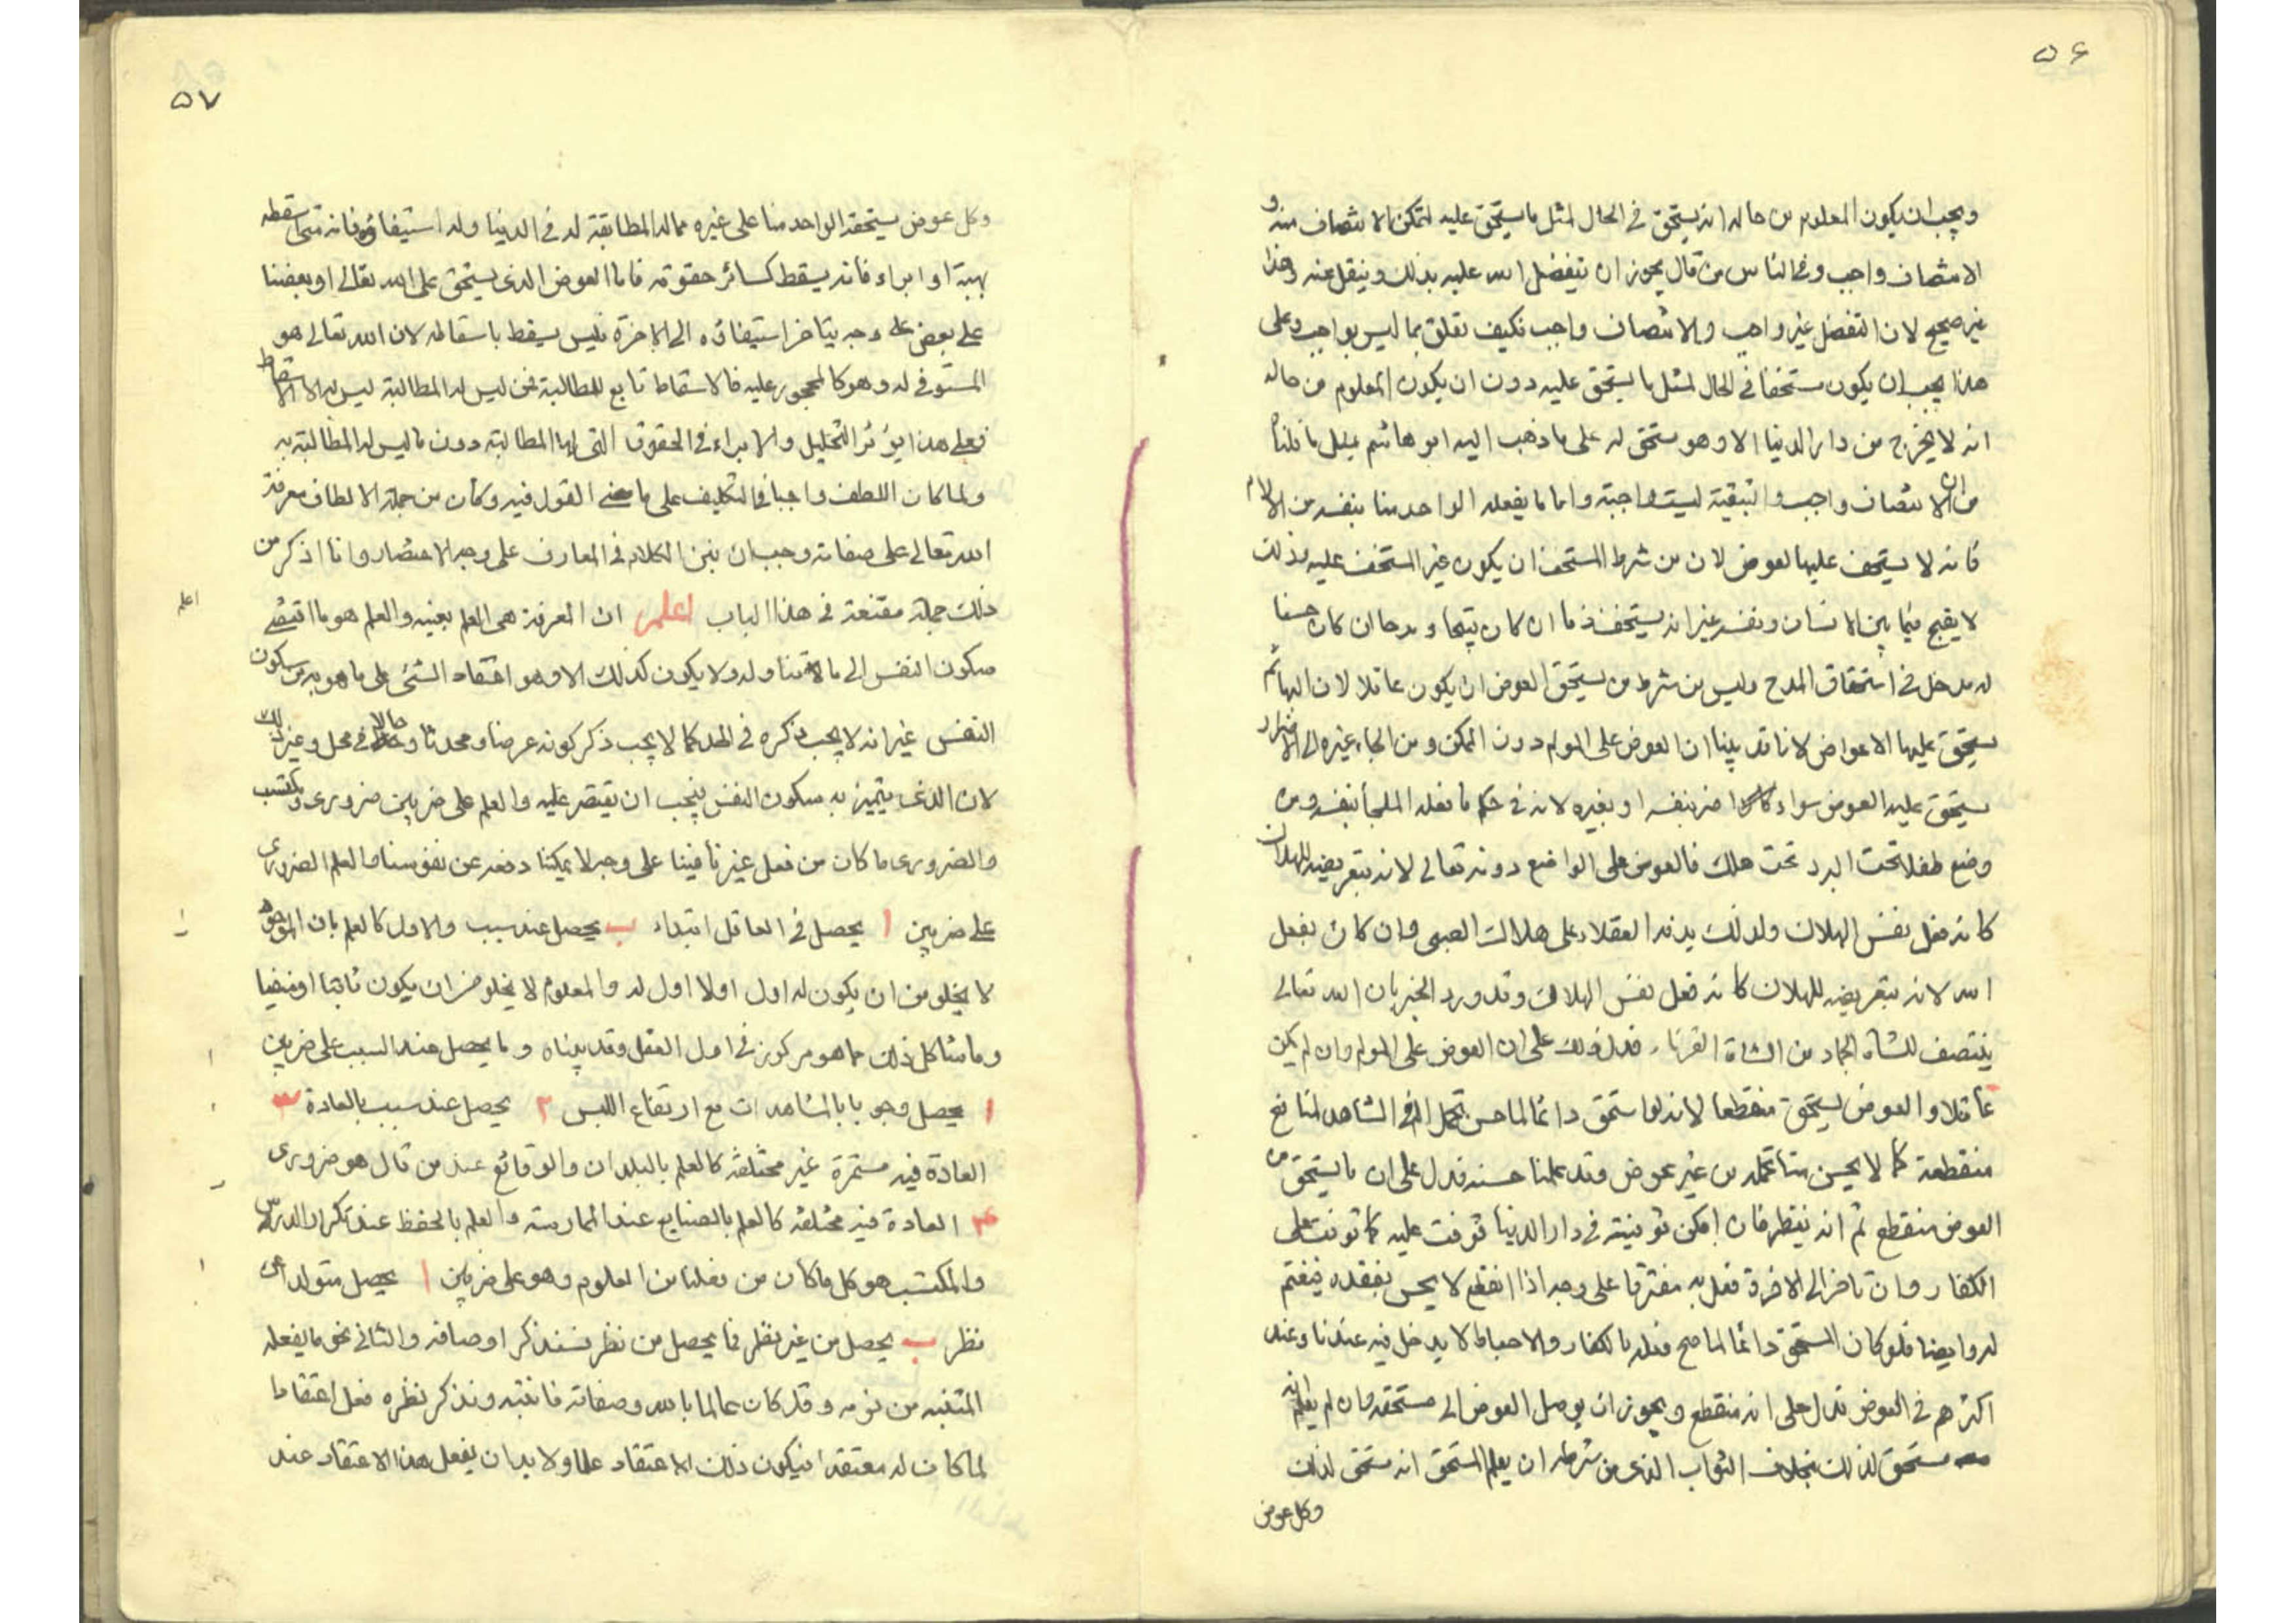 ٥٦
ويجب ان يكون المعلوم من حاله انه يستحق في الحال لمثل ما يستحق عليه لتمكن الانتصاف منه و
الانتصاف واجب وفي الناس من قال يجوز ان يتفضل الله عليه بذلك وينقل عنه وهذا
غير صحيح لان التفضل غير واجب والانتصاف واجب فكيف تعلق بما ليس بواجب وعلى
هذا يجب ان يكون مستحقا في الحال لمثل ما يستحق عليه دون ان يكون المعلوم من حاله
انه لا يخرج من دار الدنيا الا وهو مستحق له على ما ذهب اليه ابو هاشم لمثل ما قلناه
من ان الانتصاف واجب والتبقية ليست واجبة واما ما يفعله الواحد منا بنفسه من الالام
فانه لا يستحق عليها العوض لان من شرط المستحق ان يكون غير المستحق عليه فذلك
لا يقبح فيما بين الانسان ونفسه غير انه يستحق ذما ان كان قبيحا ومدحا ان كان حسنا
له مدخل في استحقاق المدح وليس من شرط من يستحق العوض ان يكون عاقلا لان البهائم
يستحق عليها الاعواض لانا قد بينا ان العوض على المولم دون الممكن ومن الجاء غيره الى الاضرار
يستحق عليه العوض سواء كان اضر بنفسه او بغيره لانه في حكم ما فعله الملجأ بنفسه ومن
وضع طفلا تحت البرد تحت هلك فالعوض على الواضع دونه تعالى لانه بتعريضه للهلاك
كانه فعل نفس الهلاك ولذلك يذمه العقلاء على هلاك الصبي وان كان بفعل
الله لانه بتعريضه للهلاك كانه فعل نفس الهلاك وقد ورد الخبر بان الله تعالى
ينتصف للشاة الجماء من الشاة القرناء فدل ذلك على ان العوض على المولم وان لم يكن
عاقلا والعوض يستحق منقطعا لانه لو استحق دائما لما حسن تحمل الم في الشاهد لمنافع
منقطعة كما لا يحسن منا تحمله من غير عوض وقد علمنا حسنه فدل على ان ما يستحق من
العوض منقطع ثم انه ينظر فان امكن توفيته في دار الدنيا توفت عليه كما توفت على
الكفار وان تاخر الى الاخرة فعل به مفترقا على وجه اذا انقطع لا يحس بفقده فيغتم
له وايضا فلو كان المستحق دائما لما صح فعله بالكفار والاحباط لا يدخل فيه عندنا وعند
اكثرهم في العوض فدل على انه منقطع ويجوز ان يوصل العوض الى مستحقه وان لم يعلم انه
مستحق لذلك بخلاف الثواب الذي من شرطه ان يعلم المستحق انه مستحق لذلك
وكل عوض
٥٧
وكل عوض يستحقه الواحد منا على غيره مما له المطالبة له في الدنيا وله استيفاؤه فانه متى اسقطه
بهبة او ابراء فانه يسقط كسائر حقوقه فاما العوض الذي يستحق على الله تعالى او بعضنا
على بعض على وجه يتاخر استيفاؤه الى الاخرة فليس يسقط باسقاطه لان الله تعالى هو
المستوفي له وهو كالمحجور عليه فالاسقاط تابع للمطالبة فمن ليس له المطالبة ليس له الاسقاط
فعلى هذا يؤثر التحليل والابراء في الحقوق التي لها المطالبة دون ما ليس له المطالبة به
ولما كان اللطف واجبا في التكليف على ما مضى القول فيه وكان من جملة الالطاف معرفة
الله تعالى على صفاته وجب ان نبين الكلام في المعارف على وجه الاختصار وانا اذكر من
ذلك جملة مقنعة في هذا الباب اعلم ان المعرفة هي العلم بعينه والعلم هو ما اقتضى
اعلم
سكون النفس الى ما تناوله ولا يكون كذلك الا وهو اعتقاد الشئ على ما هو به مع سكون
النفس غير انه لا يجب ذكره في الحد كما لا يجب ذكر كونه عرضا ومحدثا وحالا في محل وغير ذلك
لان الذي يتميز به سكون النفس فيجب ان يقتصر عليه والعلم على ضربين ضروري ومكتسب
والضروري ما كان من فعل غيرنا فينا على وجه لا يمكننا دفعه عن نفوسنا والعلم الضروري
على ضربين ا يحصل في العاقل ابتداء ب يحصل عند سبب والاول كالعلم بان الموجود
لا يخلو من ان يكون له اول اولا اول له والمعلوم لا يخلو من ان يكون ثابتا او منفيا
وما شاكل ذلك مما هو مركوز في اول العقل وقد بيناه وما يحصل عند السبب على ضربين
ا يحصل وجوبا بالمشاهدات مع ارتفاع اللبس ٢ يحصل عند سبب بالعادة ٣
العادة فيه مستمرة غير مختلفة كالعلم بالبلدان والوقائع عند من قال هو ضروري
٤ العادة فيه مختلفة كالعلم بالصنايع عند الممارسة والعلم بالحفظ عند تكرار الدرس
والمكتسب هو كل ما كان من فعلنا من العلوم وهو على ضربين ا يحصل متولدا عن
نظر ب يحصل من غير نظر فما يحصل من نظر فسنذكر اوصافه والثاني نحو ما يفعله
المنتبه من نومه وقد كان عالما بالله وصفاته فانتبه وتذكر نظره فعل اعتقادا
لما كان له معتقدا فيكون ذلك الاعتقاد علما ولا بد ان يفعل هذا الاعتقاد عند